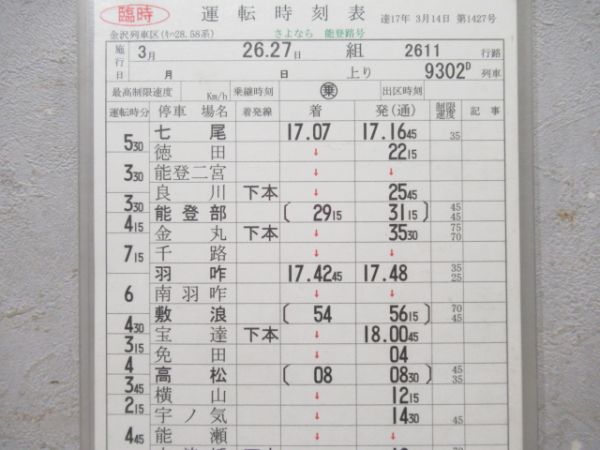 臨時 運転時刻表 達17年 3月14日 第1427号
金沢列車区(キハ28.58系) さよなら 能登路号
施行日 3月 26.27日 組 2611 行路
月 日 上り 9302D 列車
最高制限速度 Km/h 乗継時刻 乗 出区時刻
運転時分 停車場名 着発線 着 発(通) 制限速度 記事
七尾 17.07 17.16 45 35
5 30
徳田 ↓ 22 15
3 30
能登二宮 ↓ ↓
良川 下本 ↓ 25 45
3 30
能登部 〔 29 15 31 15 〕 45 45
4 15
金丸 下本 ↓ 35 30 75 70
千路 ↓ ↓
7 15
羽咋 17.42 45 17.48 35 25
6
南羽咋 ↓ ↓
敷浪 〔 54 56 15 〕 70 45
4 30
宝達 下本 ↓ 18.00 45
3 15
免田 ↓ 04
4
高松 〔 08 08 30 〕 45 35
3 45
横山 ↓ 12 15
2 15
宇ノ気 ↓ 14 30 45
能瀬 ↓ ↓
4 45